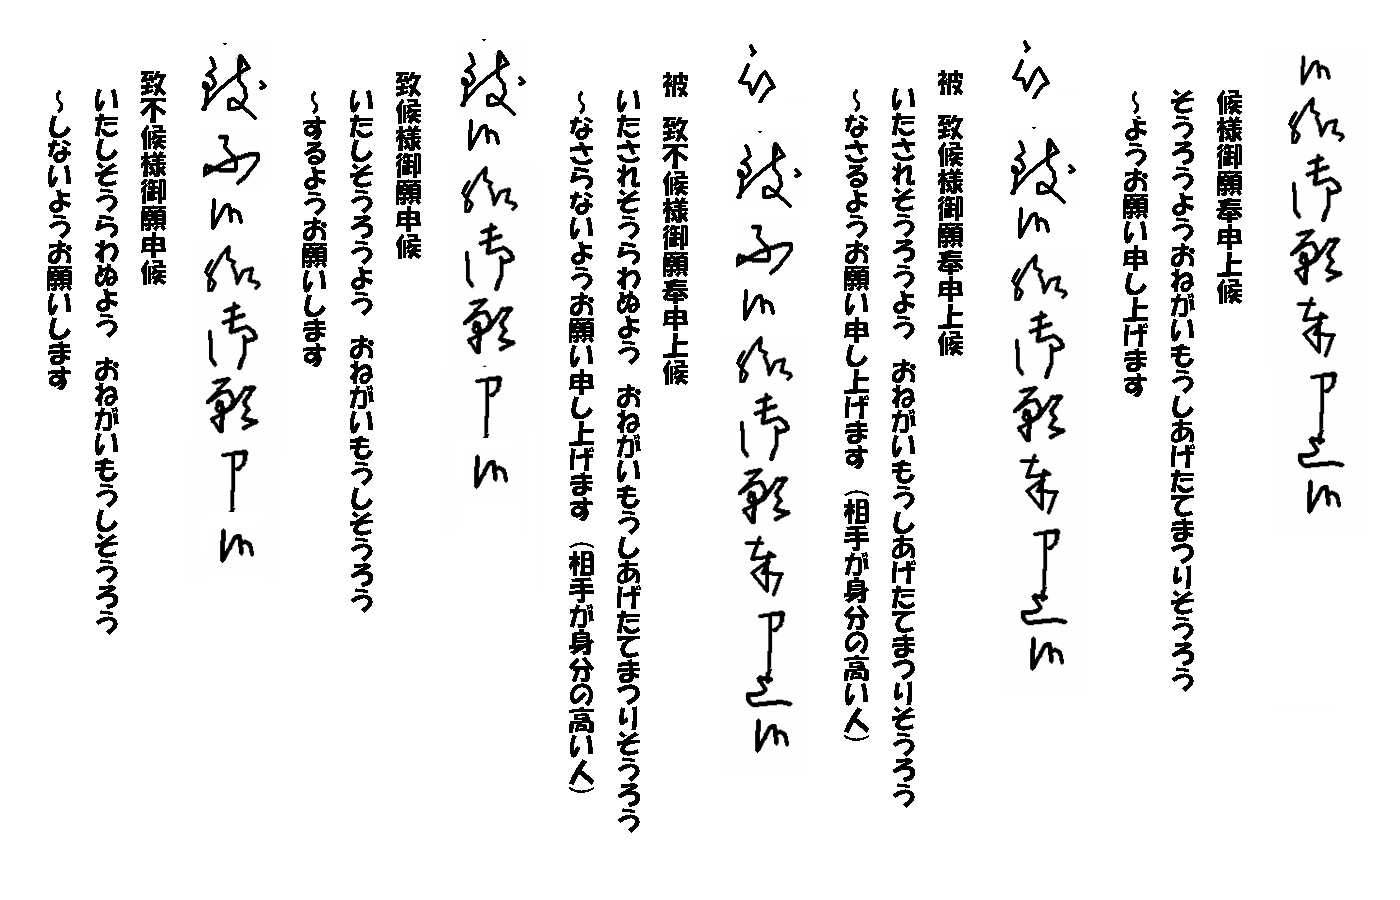 候様御願奉申上候
候様御願奉申上候
そうろうようおねがいもうしあげたてまつりそうろう
～ようお願い申し上げます
被致候様御願奉申上候
被 致候様御願奉申上候
いたされそうろうよう おねがいもうしあげたてまつりそうろう
～なさるようお願い申し上げます（相手が身分の高い人）
被致不候様御願奉申上候
被 致不候様御願奉申上候
いたされそうらわぬよう おねがいもうしあげたてまつりそうろう
～なさらないようお願い申し上げます（相手が身分の高い人）
致候様御願申候
致候様御願申候
いたしそうろうよう おねがいもうしそうろう
～するようお願いします
致不候様御願申候
致不候様御願申候
いたしそうらわぬよう おねがいもうしそうろう
～しないようお願いします